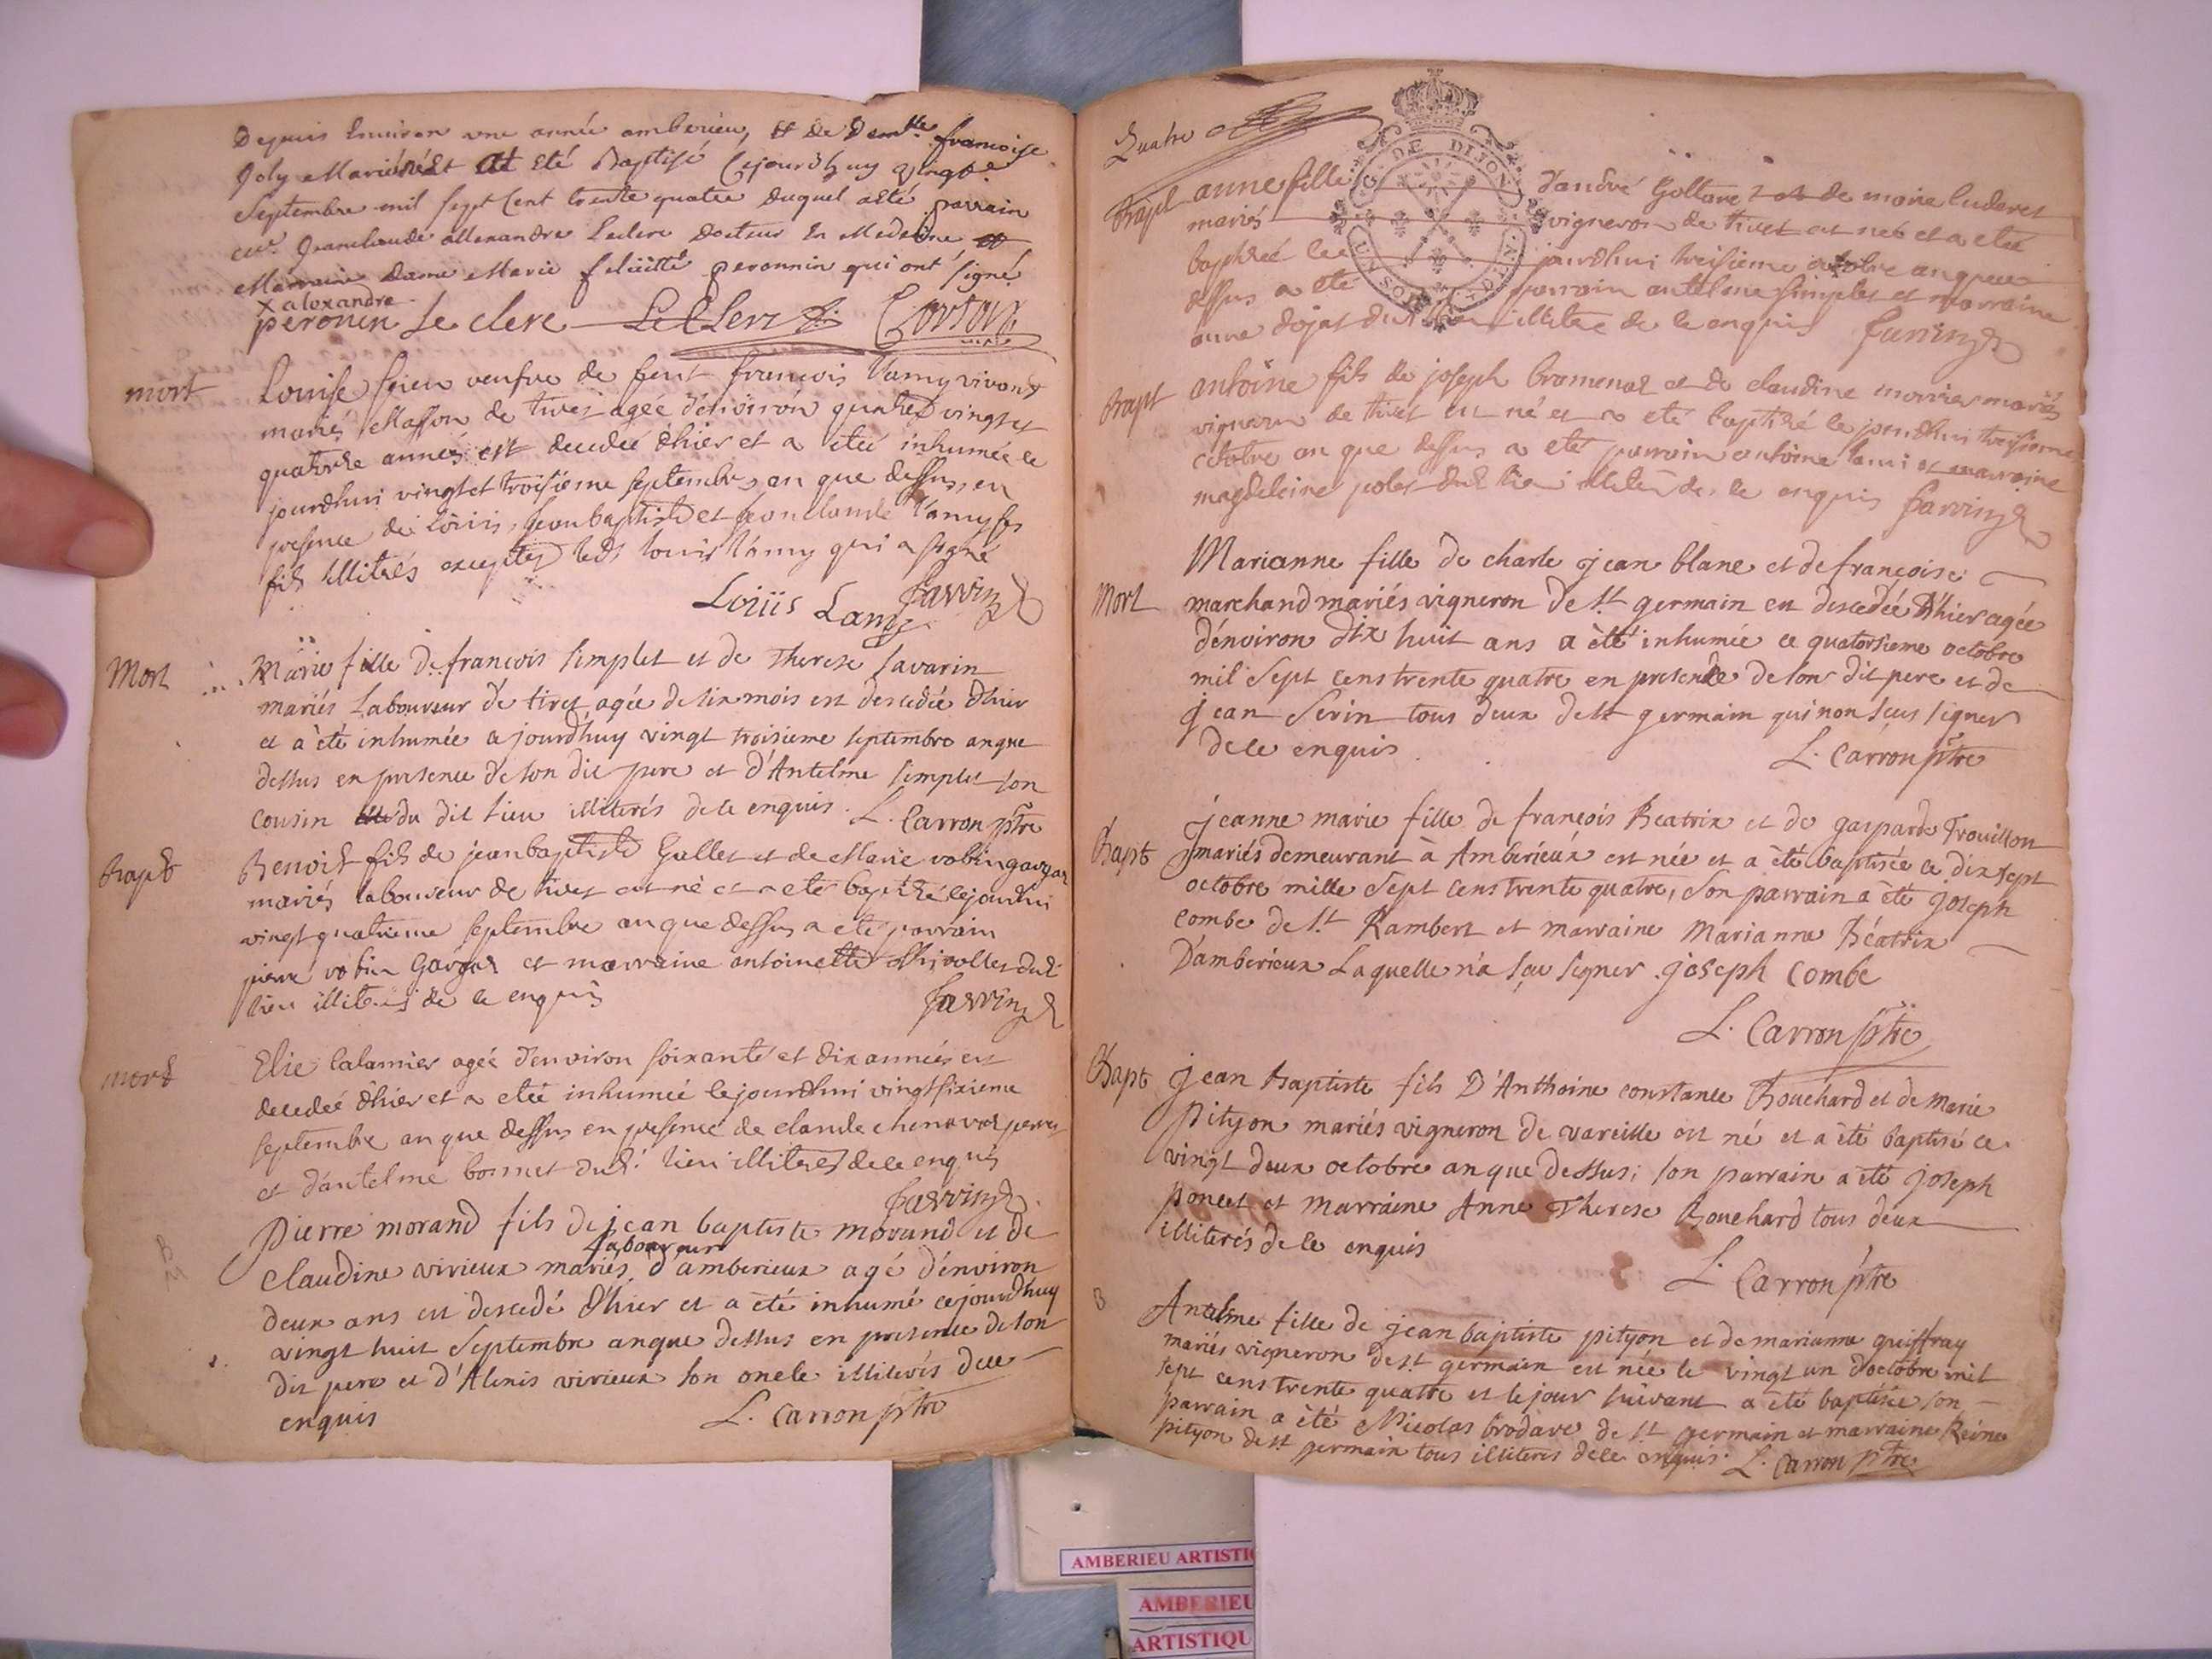 Depuis Environ une année amberieu, et de Demlle francoise
Joly Mariés Et At Eté Baptisé Cejourdhuy vingt
Septembre mil sept Cent trente quatre duquel a eté parrain
Jeanclaude Allexandre Leclerc Docteur En Medecine et
Marraine Dame Marie felicitté peronnin qui ont signé
x alexandre
peronin Le clerc Le Clerc
mort Louise veufve de feut francois Lamy vivont
mariés Masson de tiret agée d'environ quatre vingt et
quatorze annés est decedeé d'hier et a eteé inhumée le
jourdhui vingt et troisiéme septembre an que dessus, en
presence de Loüis, jeanbaptiste et jeanclaude Lamy ses
fils illitrés excepté ledt Louis Lamy qui a signé
Loüis Lamy Farving
Mort Marie fille de francois simplet et de Therese Savarin
mariés Laboureur de tiret agée de six mois est descedée d'hier
et a èté inhumée ajourd'huy vingt troisieme septembre anque
dessus en presence de son dit pere et d'Antelme simplet son
cousin du dit lieu illiterés de ce enquis. L. Carron ptre
Bapt Benoit fils de jeanbaptiste Gallet et de Marie robin
mariés laboureur de tiret est né et a eté baptizé cejourdhui
vingt quatrieme septembre an que dessus a eté parrain
pierre robin et marraine antoinette dud
lieu illiterés de ce enquis Farving
mort Elie Calamier agée d'environ soixante et dix années est
decedeé d'hier et a eteé inhumeé lejourdhui vingt sixieme
septembre an que dessus en presence de claude chenavas
et d'antelme bonnet dud. lieu illitrés de ce enquis
Farving
Pierre morand fils de jean baptiste morand et de
laboureur
claudine virieux mariés d'amberieux agé d'environ
deux ans est descedé d'hier et a èté inhumé cejourdhuy
vingt huit Septembre anque dessus en presence de son
dit pere et d'Alexis virieux son oncle illiterés de ce
enquis L. Carron ptre
Quatre
G. DE DIJON
UN SOL
Bapt anne fille d'andré Gollare et de marie
mariés vigneron de tiret est neé et a eteé
baptizeé le jourdhui treisieme octobre anque
dessus a eté parrain antelme simplet et marraine
anne dojat dud lieu illitrez de ce enquis Farving
Bapt antoine fils de joseph bramenas et de claudine mariés
vigneron de tiret est né et a eté baptizé le jourdhui treisieme
octobre an que dessus a eté parrain antoine lami et marraine
magdeleine dud lieu illiterés de ce enquis Farving
Mort Marianne fille de charle jean blanc et de françoise
marchand mariés vigneron de St germain est descedée d'hier agée
d'environ dix huit ans a èté inhumée ce quatorsieme octobre
mil sept cens trente quatre en presence de son dit pere et de
jean Serin tous deux de St germain qui non sceus signer
de ce enquis L. Carron ptre
Bapt jeanne marie fille de françois Beatrix et de gasparde Trouillon
mariés demeurant à Amberieux est née et a èté baptisée ce dix sept
octobre mille Sept cens trente quatre, Son parrain a èté joseph
combe de St Rambert et marraine Marianne Béatrix
D'amberieux Laquelle n'a sçeu signer. joseph Combe
L. Carron ptre
Bapt jean baptiste fils D'Anthoine constance Bouchard et de Marie
Pityon mariés vigneron de vareille est né et a èté baptisé ce
vingt deux octobre anque dessus; son parrain a èté joseph
poncet et Marraine Anne Therese Bouchard tous deux
illiterés de ce enquis
L. Carron ptre
B Antelme fille de jean baptiste pityon et de marianne greiffray
mariés vigneron de St germain est née le vingt un d'octobre mil
sept cens trente quatre et le jour suivant a èté baptisée son
parrain a èté Nicolas brodare de St germain et marraine Reine
pityon de St germain tous illiterés de ce enquis. L. Carron ptre
AMBERIEU ARTISTI
AMBERIEU
ARTISTIQU